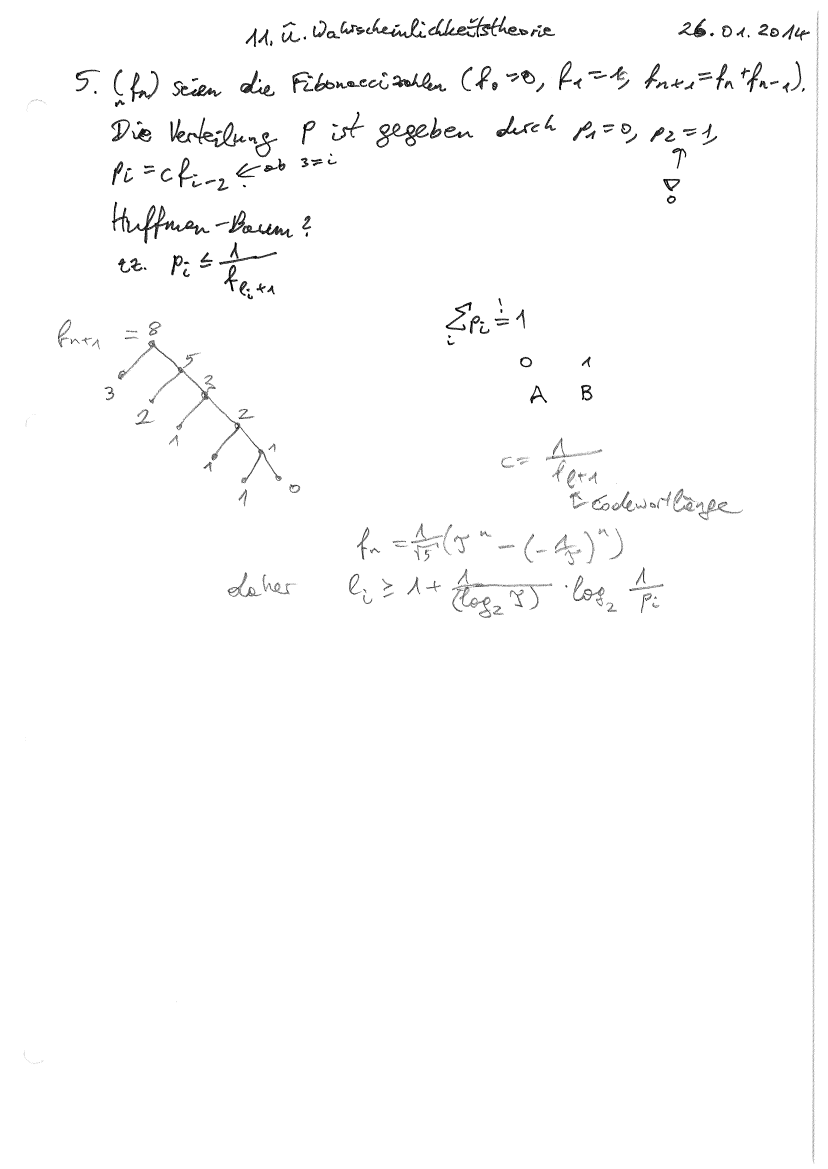 11. Ü. Wahrscheinlichkeitstheorie 26.01.2014
5. (fn)n seien die Fibonaccizahlen (f0=0, f1=1, fn+1=fn+fn-1).
Die Verteilung P ist gegeben durch p1=0, p2=1,
pi = c fi-2 ← ab 3=i
↑
!
Huffman-Baum?
zz. pi ≤ 1/fli+1
fn+1 = 8
3 5
2 3
1 2
1 1
1 0
∑i pi != 1
0 1
A B
c = 1/fl+1
Codewortlänge
fn = 1/√5 (τ^n − (−1/τ)^n)
daher li ≥ 1 + 1/(log2 τ) · log2 1/pi